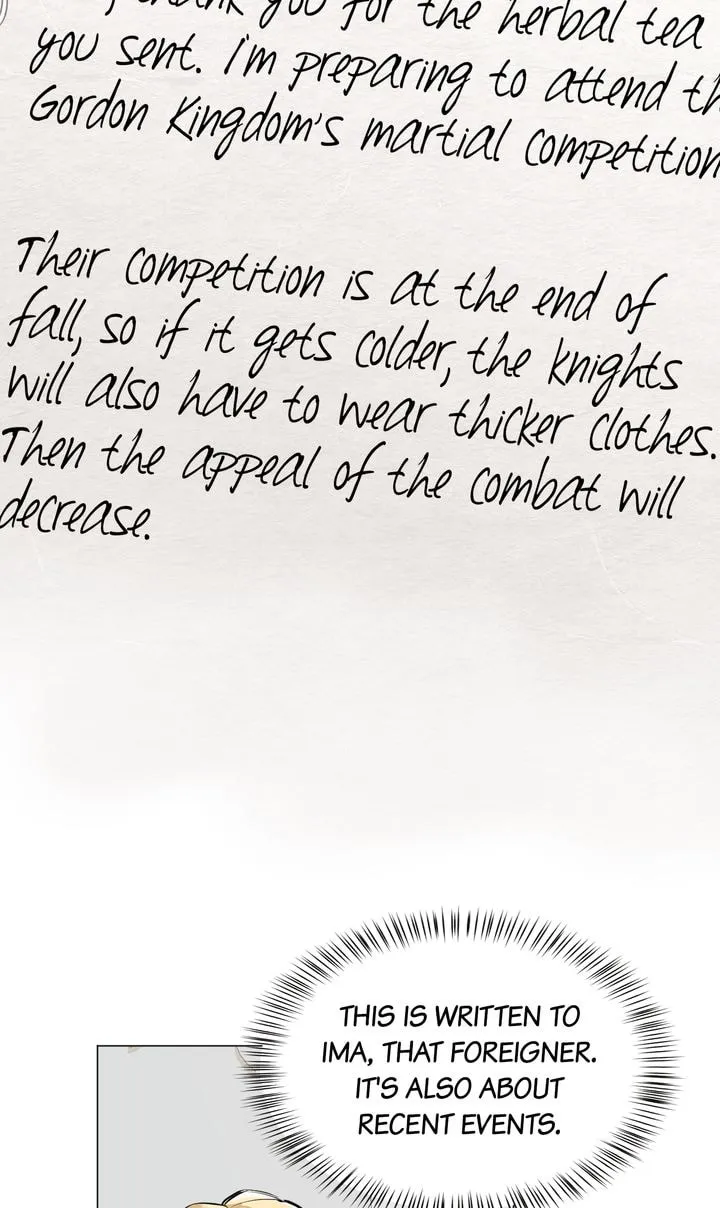 thank you for the herbal tea
you sent. I'm preparing to attend
Gordon Kingdom's martial competition
Their competition is at the end of
fall, so if it gets colder, the knights
will also have to wear thicker clothes.
Then the appeal of the combat will
decrease.
THIS IS WRITTEN TO
IMA, THAT FOREIGNER.
IT'S ALSO ABOUT
RECENT EVENTS.